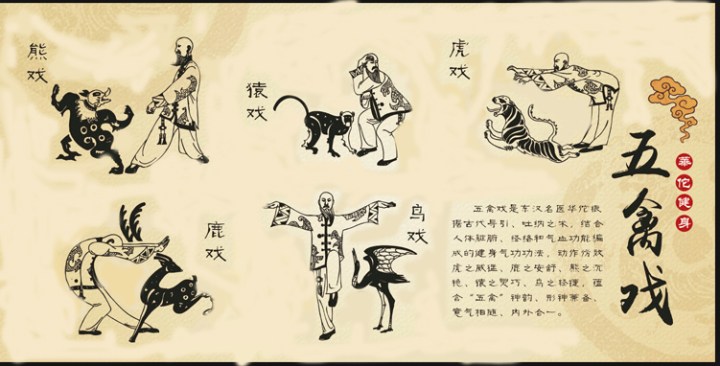 熊戏
猿戏
虎戏
鹿戏
鸟戏
五禽戏
华佗健身
五禽戏是东汉名医华佗根
据古代导引、吐纳之术，结合
人体脏腑、经络和气血功能编
成的健身气功功法，动作仿效
虎之威猛、鹿之安舒、熊之沉
稳、猿之灵巧、鸟之轻捷，蕴
含“五禽”神韵，形神兼备，
意气相随，内外合一。